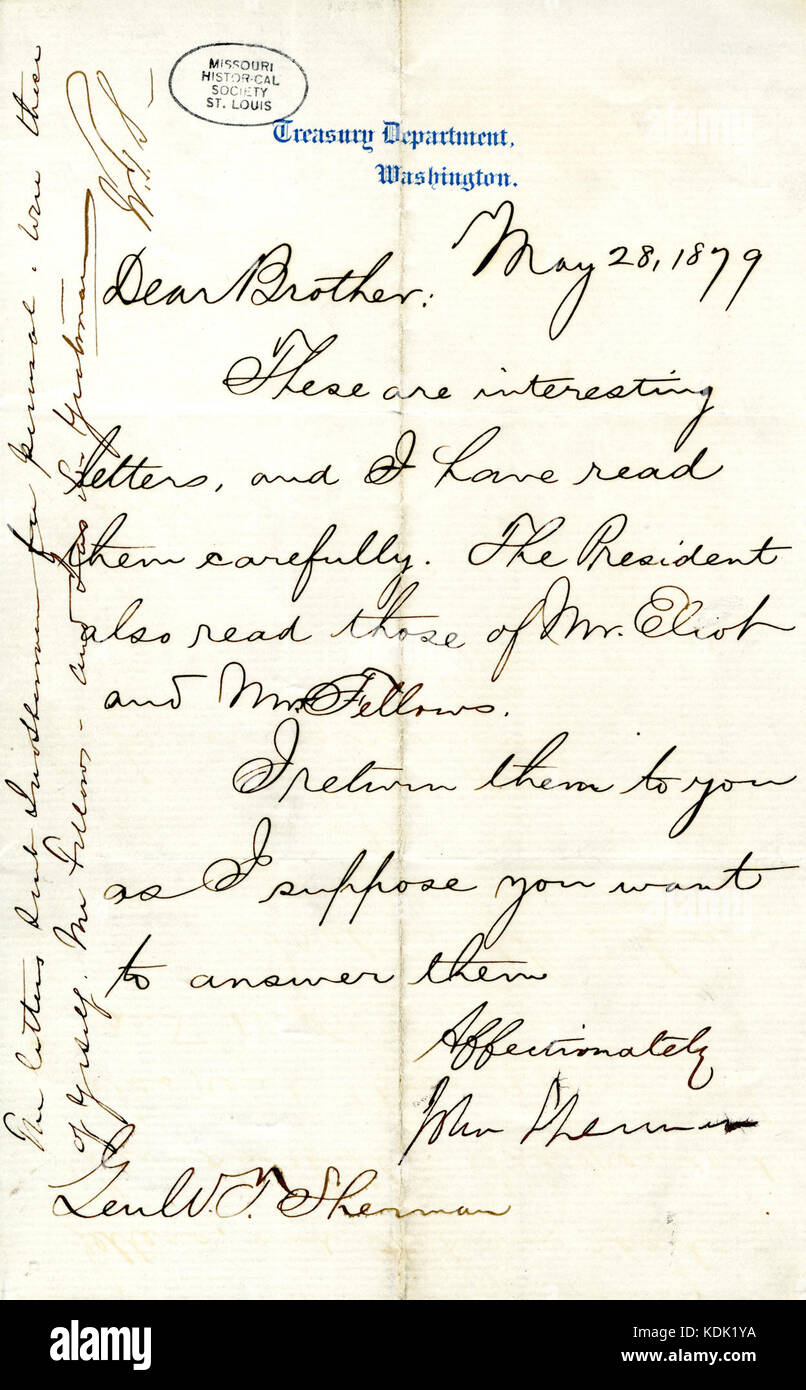 MISSOURI
HISTORICAL
SOCIETY
ST. LOUIS
Treasury Department,
Washington.
May 28, 1879
Dear Brother:
These are interesting
letters, and I have read
them carefully. The President
also read those of Mr. Eliot
and Mr. Fellows.
I return them to you
as I suppose you want
to answer them
Affectionately
John Sherman
Gen W. T. Sherman
The letters sent Jno Sherman for perusal, were those
of yrself. Mr Fellows - and Jas. E. Yeatman
W.T.S.
alamy
Image ID: KDK1YA
www.alamy.com